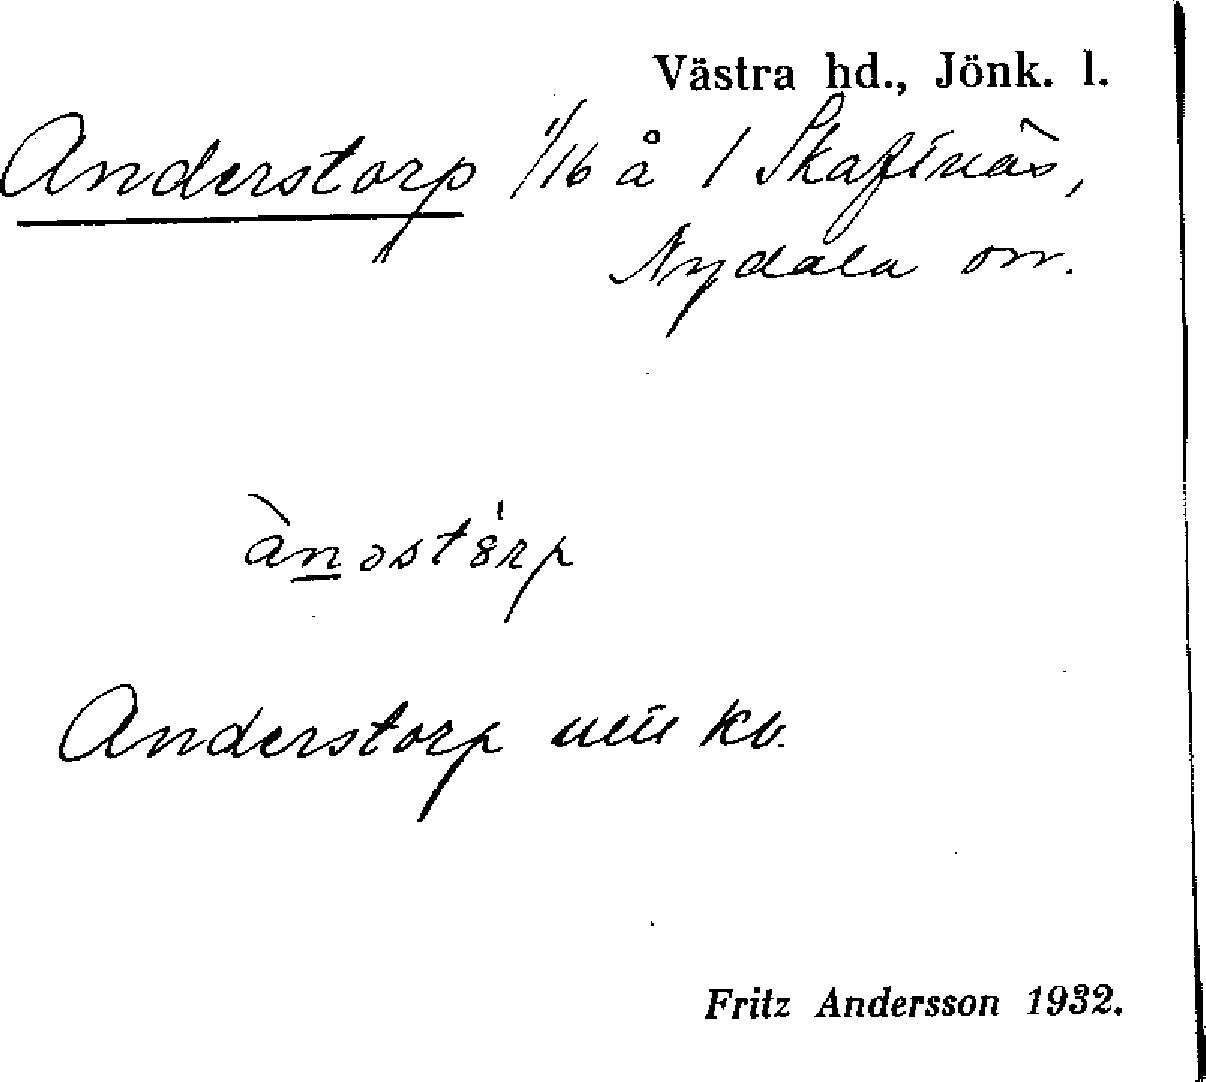 Västra hd., Jönk. l.
Anderstorp 1/16 å 1 Skaftnäs,
Nydala sn.
ànəstórp
Anderstorp kb.
Fritz Andersson 1932.